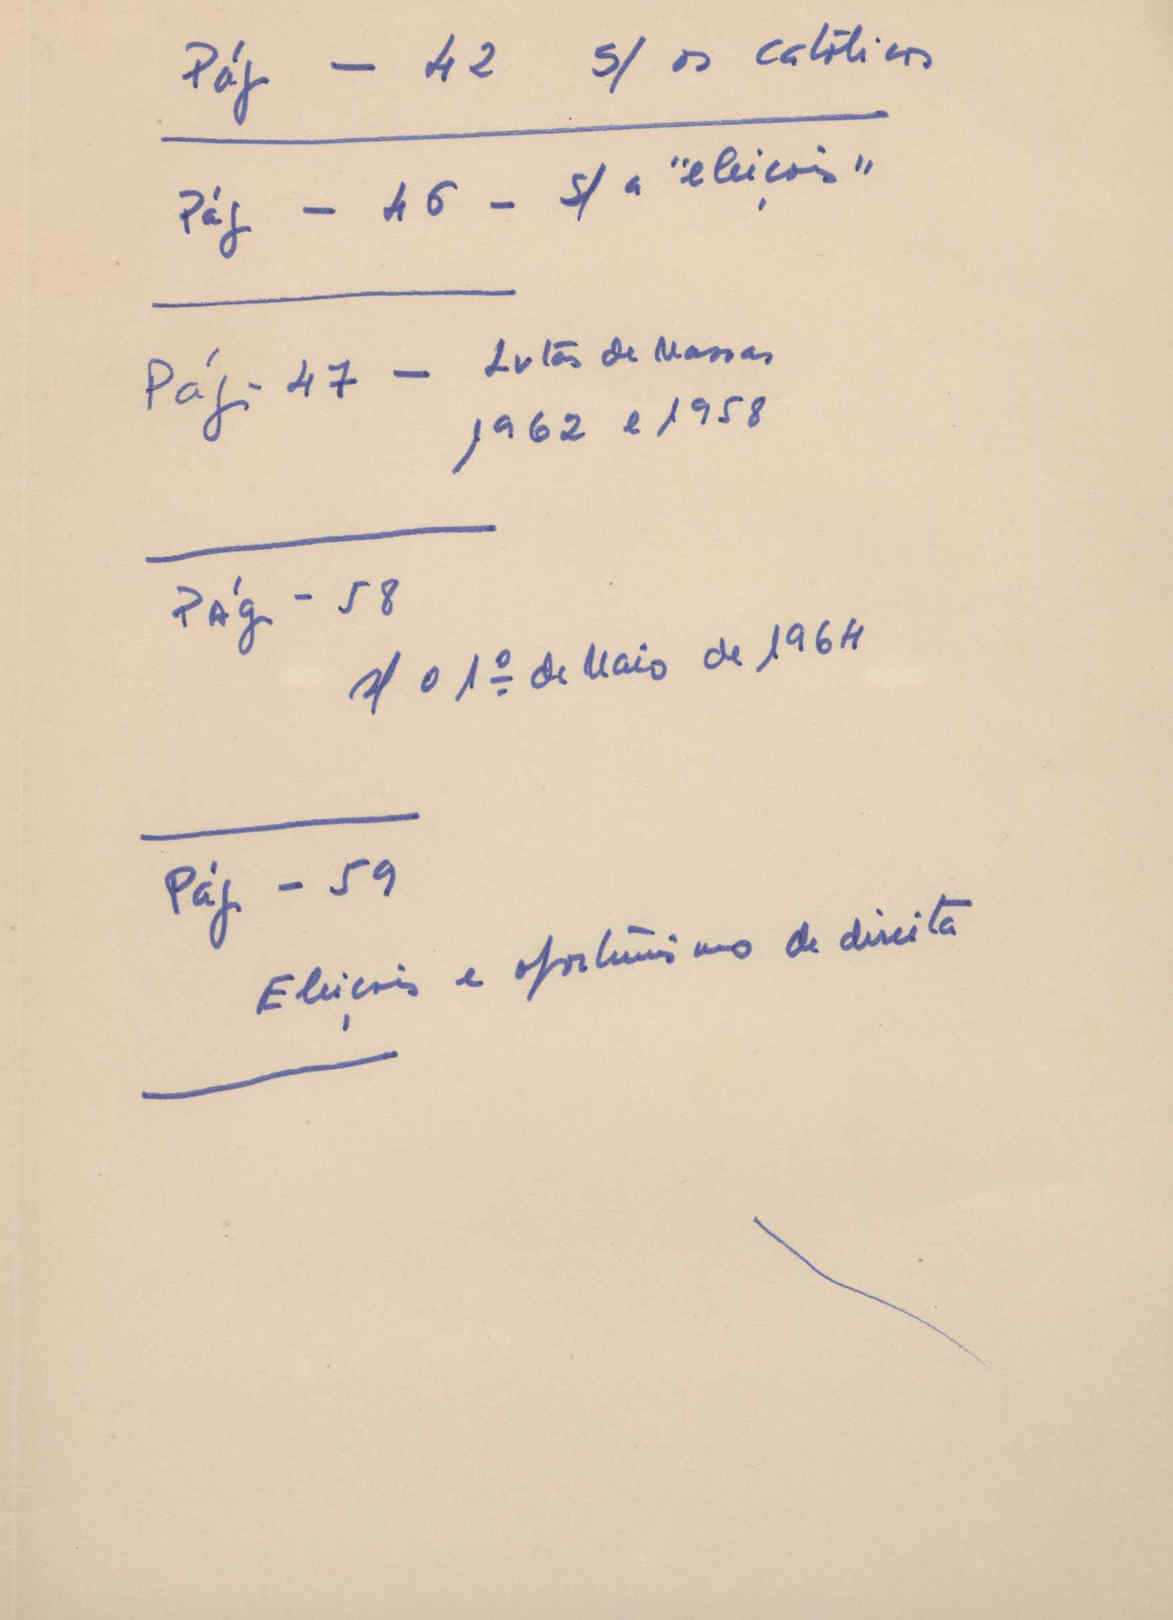 Pág - 42 s/ os católicos
Pág - 46 - s/ a "eleições"
Pág. - 47 - Lutas de Massas
1962 e 1958
PÁg - 58
s/ o 1º de Maio de 1964
Pág - 59
Eleições e oportunismo de direita